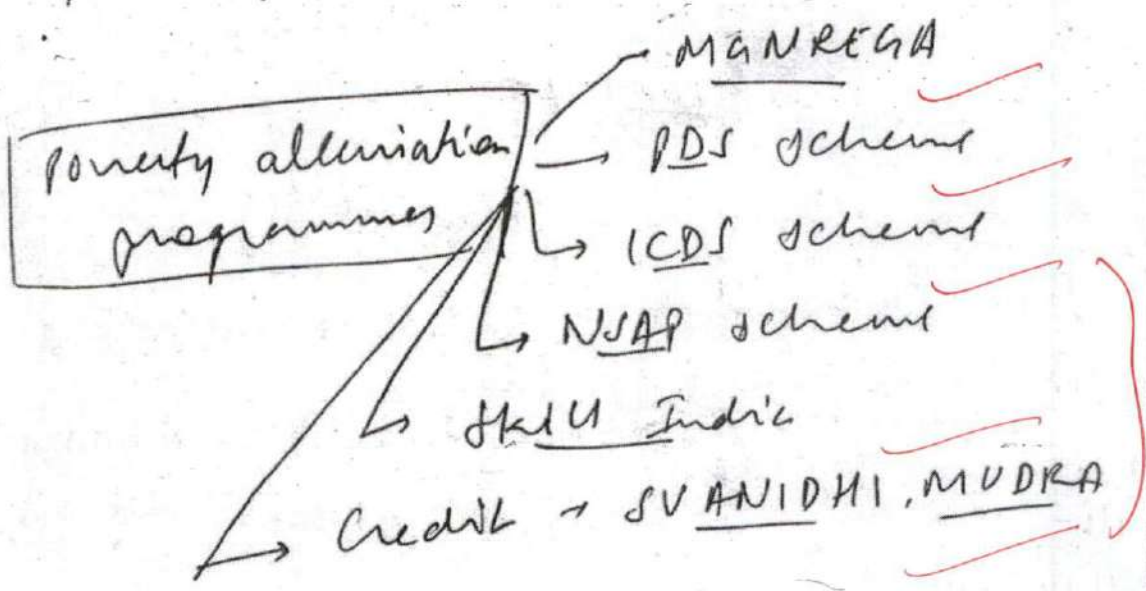 MGNREGA
Poverty alleviation
programmes
PDS scheme
ICDS scheme
NSAP scheme
Skill India
Credit → SVANIDHI, MUDRA